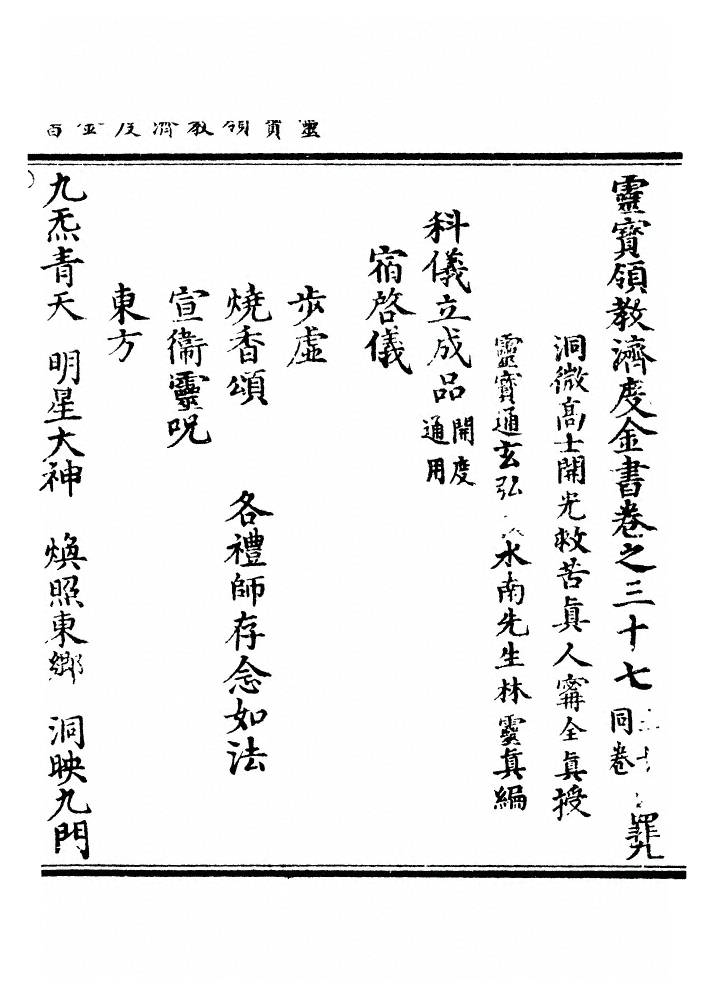 靈寶領教濟度金書
靈寶領教濟度金書卷之三十七 同卷
洞微高士開光救苦眞人甯全眞授
靈寶通玄弘 水南先生林靈眞編
科儀立成品 開度通用
宿啓儀
步虛
燒香頌 各禮師存念如法
宣衞靈呪
東方
九炁青天 明星大神 煥照東鄉 洞映九門